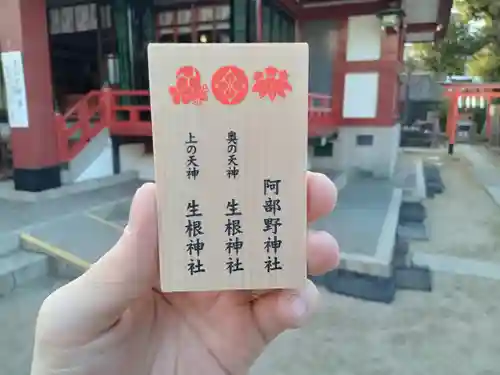 阿部野神社
奥の天神
生根神社
上の天神
生根神社